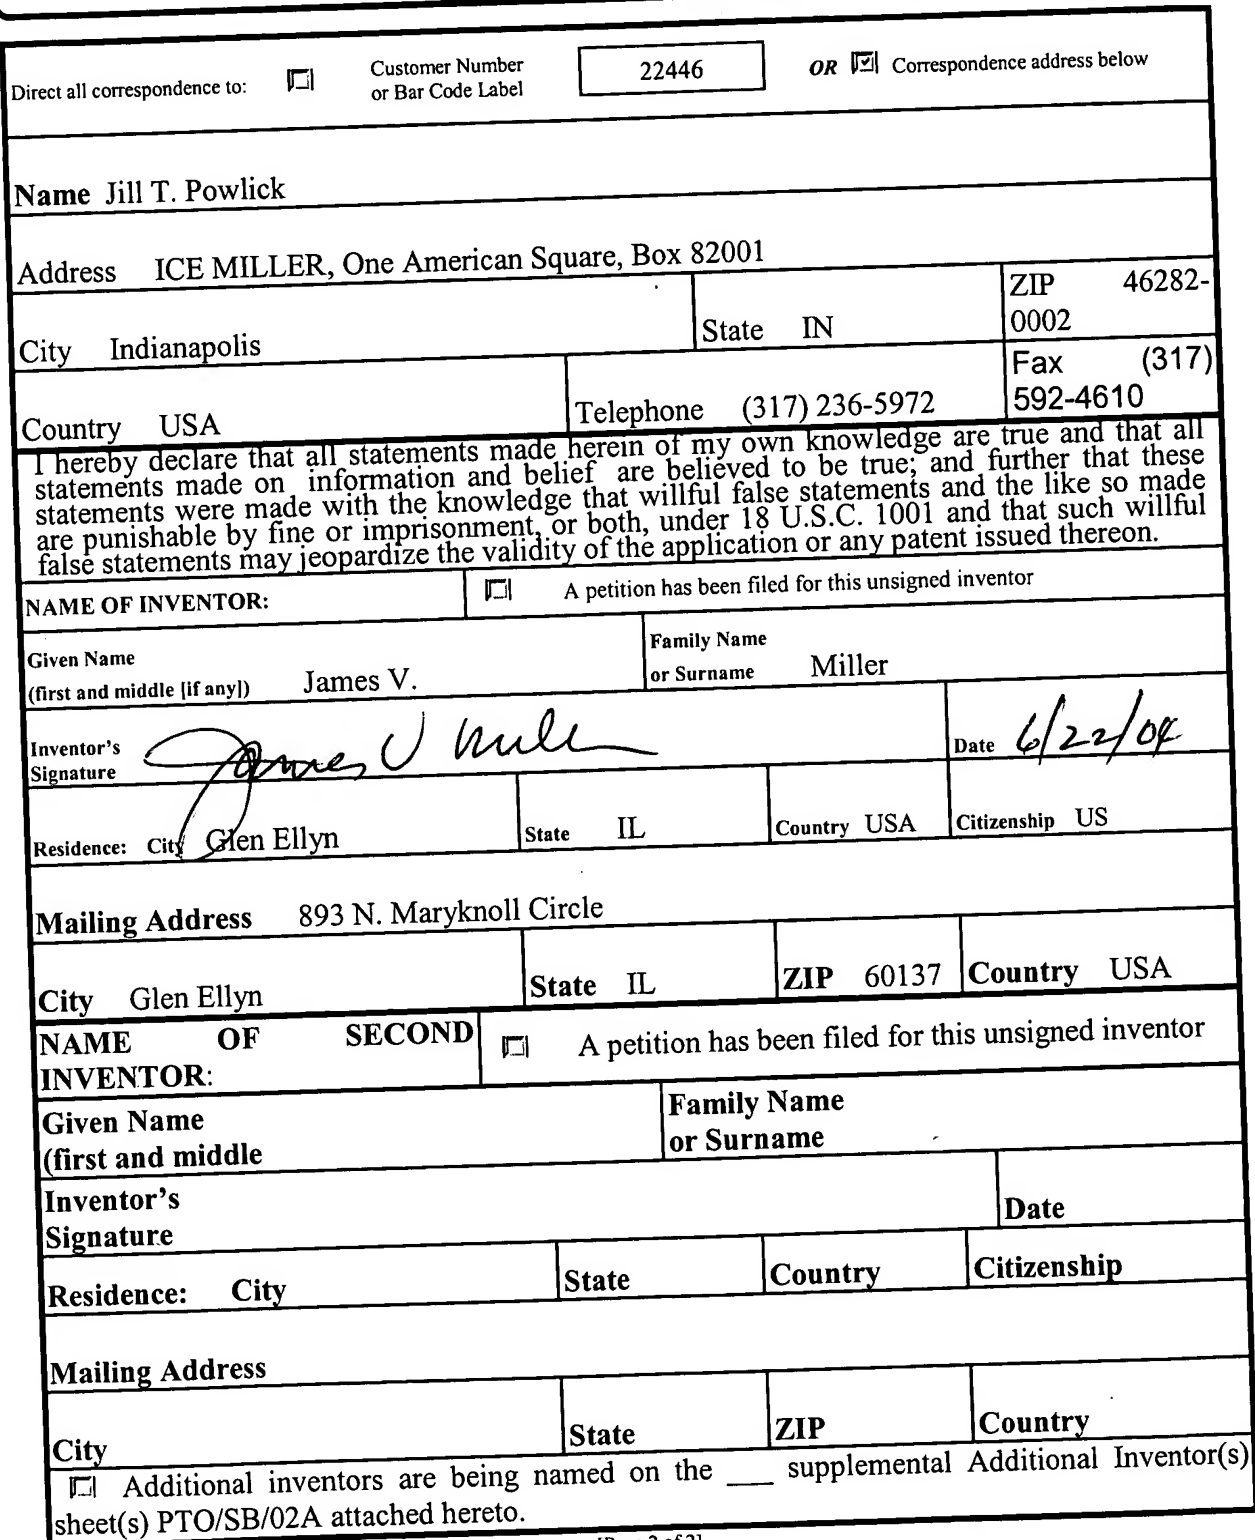 Direct all correspondence to: Customer Number or Bar Code Label 22446 OR Correspondence address below
Name Jill T. Powlick
Address ICE MILLER, One American Square, Box 82001
City Indianapolis State IN ZIP 46282-0002
Country USA Telephone (317) 236-5972 Fax (317) 592-4610
I hereby declare that all statements made herein of my own knowledge are true and that all
statements made on information and belief are believed to be true; and further that these
statements were made with the knowledge that willful false statements and the like so made
are punishable by fine or imprisonment, or both, under 18 U.S.C. 1001 and that such willful
false statements may jeopardize the validity of the application or any patent issued thereon.
NAME OF INVENTOR: A petition has been filed for this unsigned inventor
Given Name
(first and middle [if any]) James V.
Family Name
or Surname Miller
Inventor's
Signature James V Miller
Date 6/22/04
Residence: City Glen Ellyn State IL Country USA Citizenship US
Mailing Address 893 N. Maryknoll Circle
City Glen Ellyn State IL ZIP 60137 Country USA
NAME OF SECOND
INVENTOR:
A petition has been filed for this unsigned inventor
Given Name
(first and middle
Family Name
or Surname
Inventor's
Signature
Date
Residence: City State Country Citizenship
Mailing Address
City State ZIP Country
Additional inventors are being named on the ___ supplemental Additional Inventor(s)
sheet(s) PTO/SB/02A attached hereto.